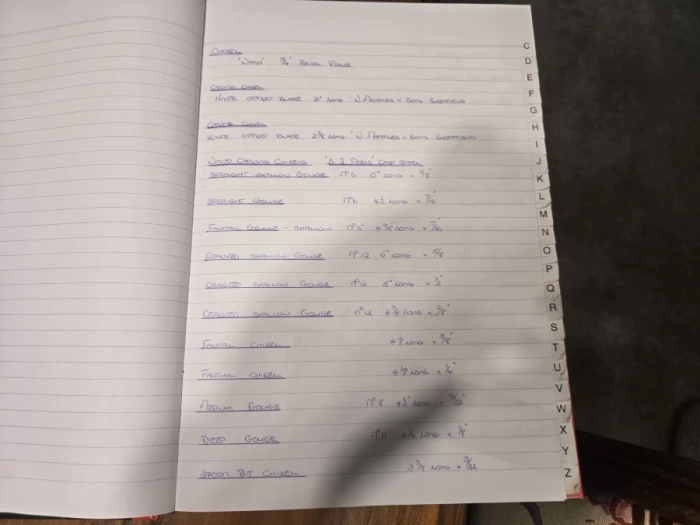 CHISEL
¾" BEVEL EDGE
CARVING CHISEL
KNIFE OFFSET BLADE 2" LONG "J. MAPPLES & SONS SHEFFIELD
CARVING CHISEL
KNIFE OFFSET BLADE 2⅜ LONG "J. MAPPLES & SONS SHEFFIELD
WOOD CARVING CHISELS "S. J. ADDIS" CAST STEEL
STRAIGHT SHALLOW GOUGE Nº 6 5" LONG × ⅝"
STRAIGHT GOUGE Nº 6 4½ LONG × 7/16"
FANTAIL GOUGE - SHALLOW Nº 5 LONG × 7/16"
CRANKED SHALLOW GOUGE Nº 12 5" LONG ×
CRANKED SHALLOW GOUGE Nº 12 5" LONG × ½"
CRANKED SHALLOW GOUGE Nº 12 4¾ LONG × ⅜"
FANTAIL CHISEL 4⅛ LONG × ⅜"
FANTAIL CHISEL 4⅛ LONG × ¼"
MEDIUM GOUGE Nº 8 4½" LONG ×
DEEP GOUGE Nº 11 4¼ LONG × ⅛"
SPOON BIT CHISEL 3⅞ LONG ×
C
D
E
F
G
H
I
J
K
L
M
N
O
P
Q
R
S
T
U
V
W
X
Y
Z